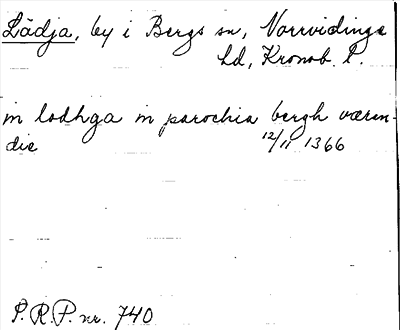 Lädja, by i Bergs sn, Norrvidinge
hd, Kronob. l.
in lodhga in parochia bergh væren-
die 12/11 1366
P.R.P. nr. 740